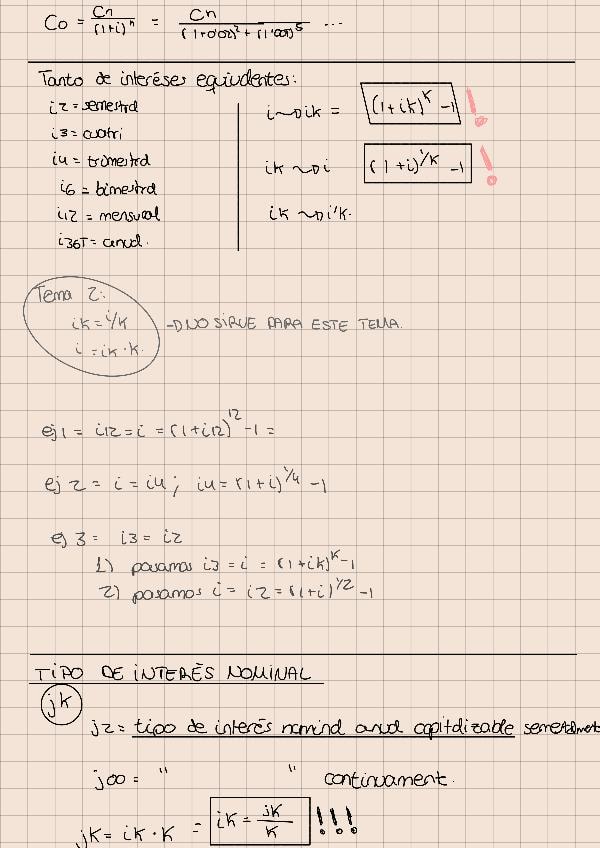 Co = Cn / (1+i)^n = Cn / (1+0'02)² + (1'00)⁵ ...
Tanto de interéses equivalentes:
i2 = semestral
i3 = cuatri
i4 = trimestral
i6 = bimestral
i12 = mensual
i365 = anual.
i ~> ik = (1+ik)^k -1 !
ik ~> i (1+i)^1/k -1 !
ik ~> i'k.
Tema 2:
ik = i/k
i = ik · k.
-> NO SIRVE PARA ESTE TEMA.
ej1 = i12 = i = (1+i12)^12 -1 =
ej 2 = i = i4 ; i4 = (1+i)^1/4 -1
ej 3 = i3 = i2
1) pasamos i3 = i = (1+ik)^k -1
2) pasamos i = i2 = (1+i)^1/2 -1
TIPO DE INTERÉS NOMINAL
jk
j2 = tipo de interés nominal anual capitalizable semestralmente
j∞ = " " continuament.
jk = ik · k = ik = jk / k !!!